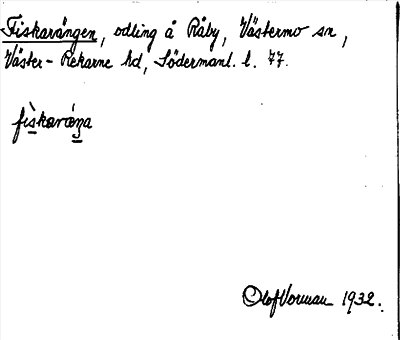 Fiskarängen, odling å Råby, Västermo sn,
Väster-Rekarne hd, Södermanl. l. 77.
fiskaräŋa
Olof Vorman 1932.